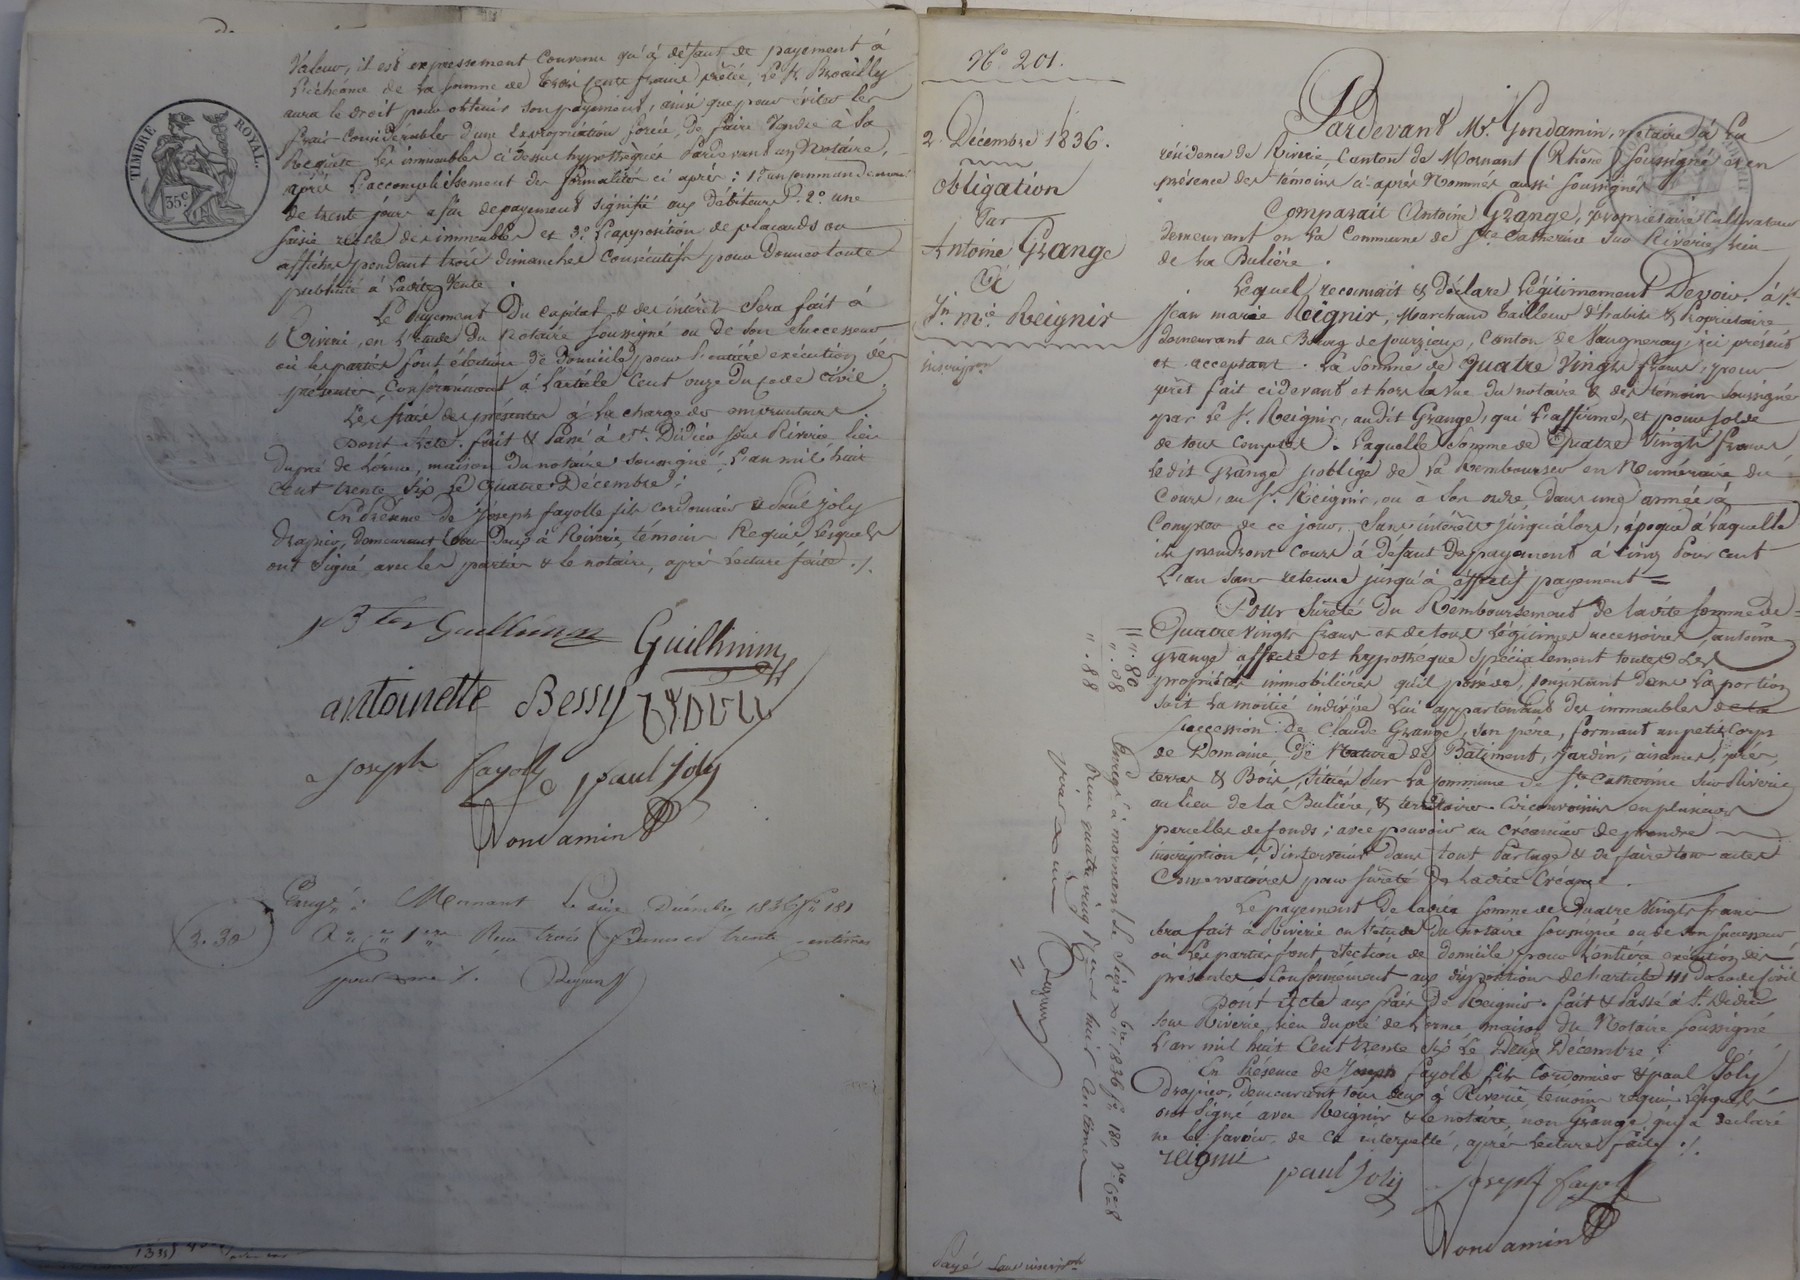 valeur, il est expressement convenu qu'à défaut de payement à
l'échéance de la somme de trois cents francs prêtée, le Sr Broailly
aura le droit pour obtenir son payement, ainsi que pour éviter les
frais considérables d'une expropriation forcée, de faire vendre à sa
Requête les immeubles ci dessus hypothéqués pardevant un Notaire,
après l'accomplissement des formalités ci après : 1.° un commandement
de trente jours afin de payement signifié aux débiteurs 2.° une
saisie réelle des immeubles et 3.° l'apposition de placards ou
affiches pendant trois dimanches consécutifs pour donner toute
publicité à ladite vente
Le Payement du capital & des intérêts sera fait à
Riverie, en l'Etude du Notaire soussigné ou de son successeur
où les parties font élection de domicile pour l'entière exécution des
présentes, conformément à l'article cent onze du code civil.
Les frais des présentes à la charge des emprunteurs
Dont Acte. fait & Passé à St. Didier sous Riverie, lieu
du pré de Lerme, maison du notaire soussigné, l'an mil huit
cent trente six Le quatre Décembre ;
En présence de Joseph fayolle fils cordonnier & Paul joly
drapier, demeurant tous deux à Riverie, témoins Requis lesquels
ont signé avec les parties & le notaire, après lecture faite ./.
TIMBRE ROYAL.
35c
Guilhimin
antoinette Bessy
joseph fayolle paul Joly
Gondamin
Enregé à Mornant le seize Décembre 1836 f° 181
3.30
Reçu trois francs trente centimes
N.° 201.
2 Décembre 1836.
Obligation
Par
Antoine Grange
à
Jn. mie. Reignir
inscription
Pardevant Me. Gondamin, notaire à la
résidence de Riverie, Canton de Mornant (Rhône) soussigné & en
présence des témoins ci-après Nommés aussi soussignés
Comparait Antoine Grange, propriétaire cultivateur
demeurant en la Commune de Ste. Catherine sur Riverie, lieu
de la Bulière.
Lequel reconnait & déclare légitimement Devoir à Sr.
Jean marie Reignir, Marchand tailleur d'habits & propriétaire
demeurant au Bourg de Courzieux, Canton de Vaugneray, ici présent
et acceptant. La somme de Quatre Vingts francs, pour
prêt fait ci devant et hors la vue du notaire & des témoins soussignés
par le Sr. Reignir, audit Grange, qui l'affirme, et pour solde
de tous comptes. Laquelle somme de Quatre Vingts francs
ledit Grange s'oblige de la Rembourser en Numéraire du
Cours, au Sr. Reignir, ou à son ordre dans une année à
Compter de ce jour, Sans intérêts jusqu'alors, époque à laquelle
ils prendront cours à défaut de payement à cinq pour cent
L'an sans retenue jusqu'à effectif payement =
Pour sûreté du Remboursement de ladite somme de =
Quatre Vingts francs et de tous légitimes accessoires, antoine
Grange affecte et hypothèque spécialement toutes les
propriétés immobilières qu'il possède, consistant dans la portion
soit la moitié indivise lui appartenant des immeubles de la
succession de Claude Grange, son père, formant un petit corps
de Domaine, de Nature de Batiment, Jardin, aisances, prés,
terres & Bois, situés sur la commune de Ste. Catherine sur Riverie
au lieu de la Bulière, & territoires circonvoisins en plusieurs
parcelles de fonds ; avec pouvoir au créancier de prendre
inscription, d'intervenir dans tout Partage & de faire tous actes
Conservatoires pour sûreté de ladite Créance.
Le payement de ladite somme de Quatre Vingts francs
sera fait à Riverie en l'étude du notaire soussigné ou de son successeur
où les parties font élection de domicile pour l'entière exécution des
présentes conformément aux dispositions de l'article 111 du code civil
Dont Acte aux frais de Reignir. fait & Passé à St. Didier
sous Riverie, lieu du pré de Lerme maison du Notaire soussigné
L'an mil huit Cent trente six Le Deux Décembre ;
En Présence de Joseph fayolle fils Cordonnier & paul Joly
Drapier, demeurant tous deux à Riverie, témoins requis lesquels
ont signé avec Reignir & le notaire, non Grange, qui a déclaré
ne le savoir de ce interpellé, après lecture faite ./.
reignir paul Joly joseph fayolle
Gondamin
" 80
" . 08
" . 88
Enregé à mornant le seize Xbre 1836 f° 180 Ve 6 & 8
Reçu quatre vingt huit centimes
Payé